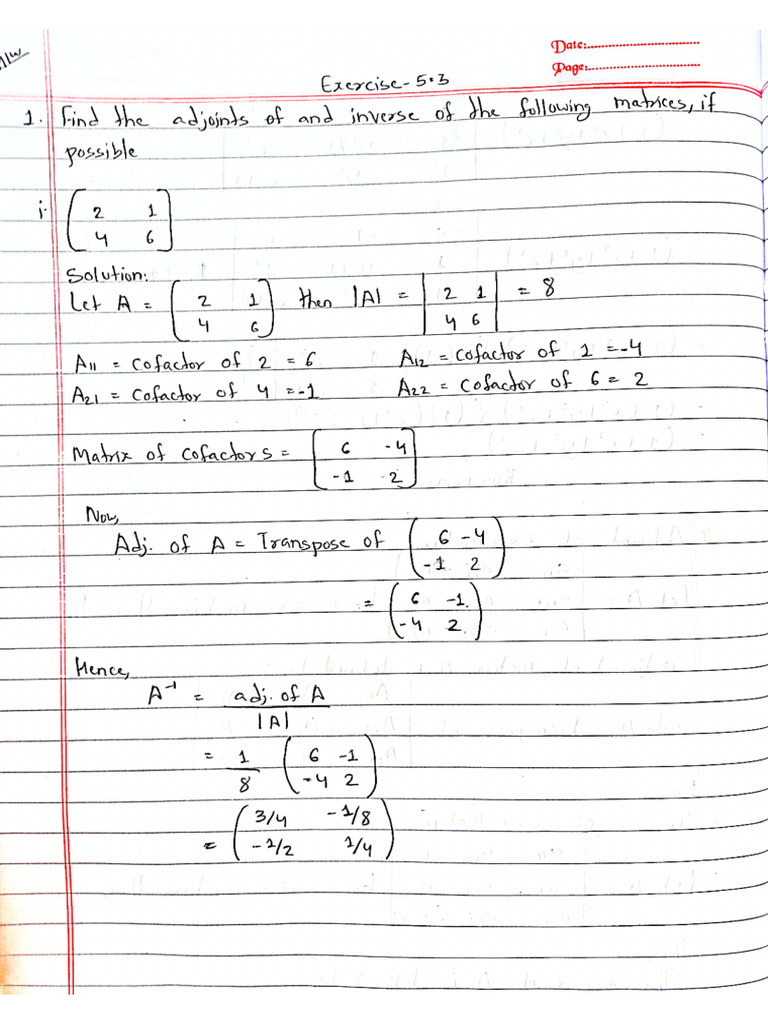 Date:
Page:
Exercise-5.3
1. Find the adjoints of and inverse of the following matrices, if
possible
i. 2 1
4 6
Solution:
Let A = ( 2 1 then |A| = | 2 1 | = 8
4 6 ) 4 6
A11 = cofactor of 2 = 6 A12 = cofactor of 1 = -4
A21 = cofactor of 4 = -1 A22 = cofactor of 6 = 2
Matrix of cofactors = [ 6 -4
-1 2 ]
Now,
Adj. of A = Transpose of ( 6 -4
-1 2 )
= ( 6 -1
-4 2 )
Hence,
A⁻¹ = adj. of A
|A|
= 1 ( 6 -1
8 -4 2 )
= ( 3/4 -1/8
-1/2 1/4 )